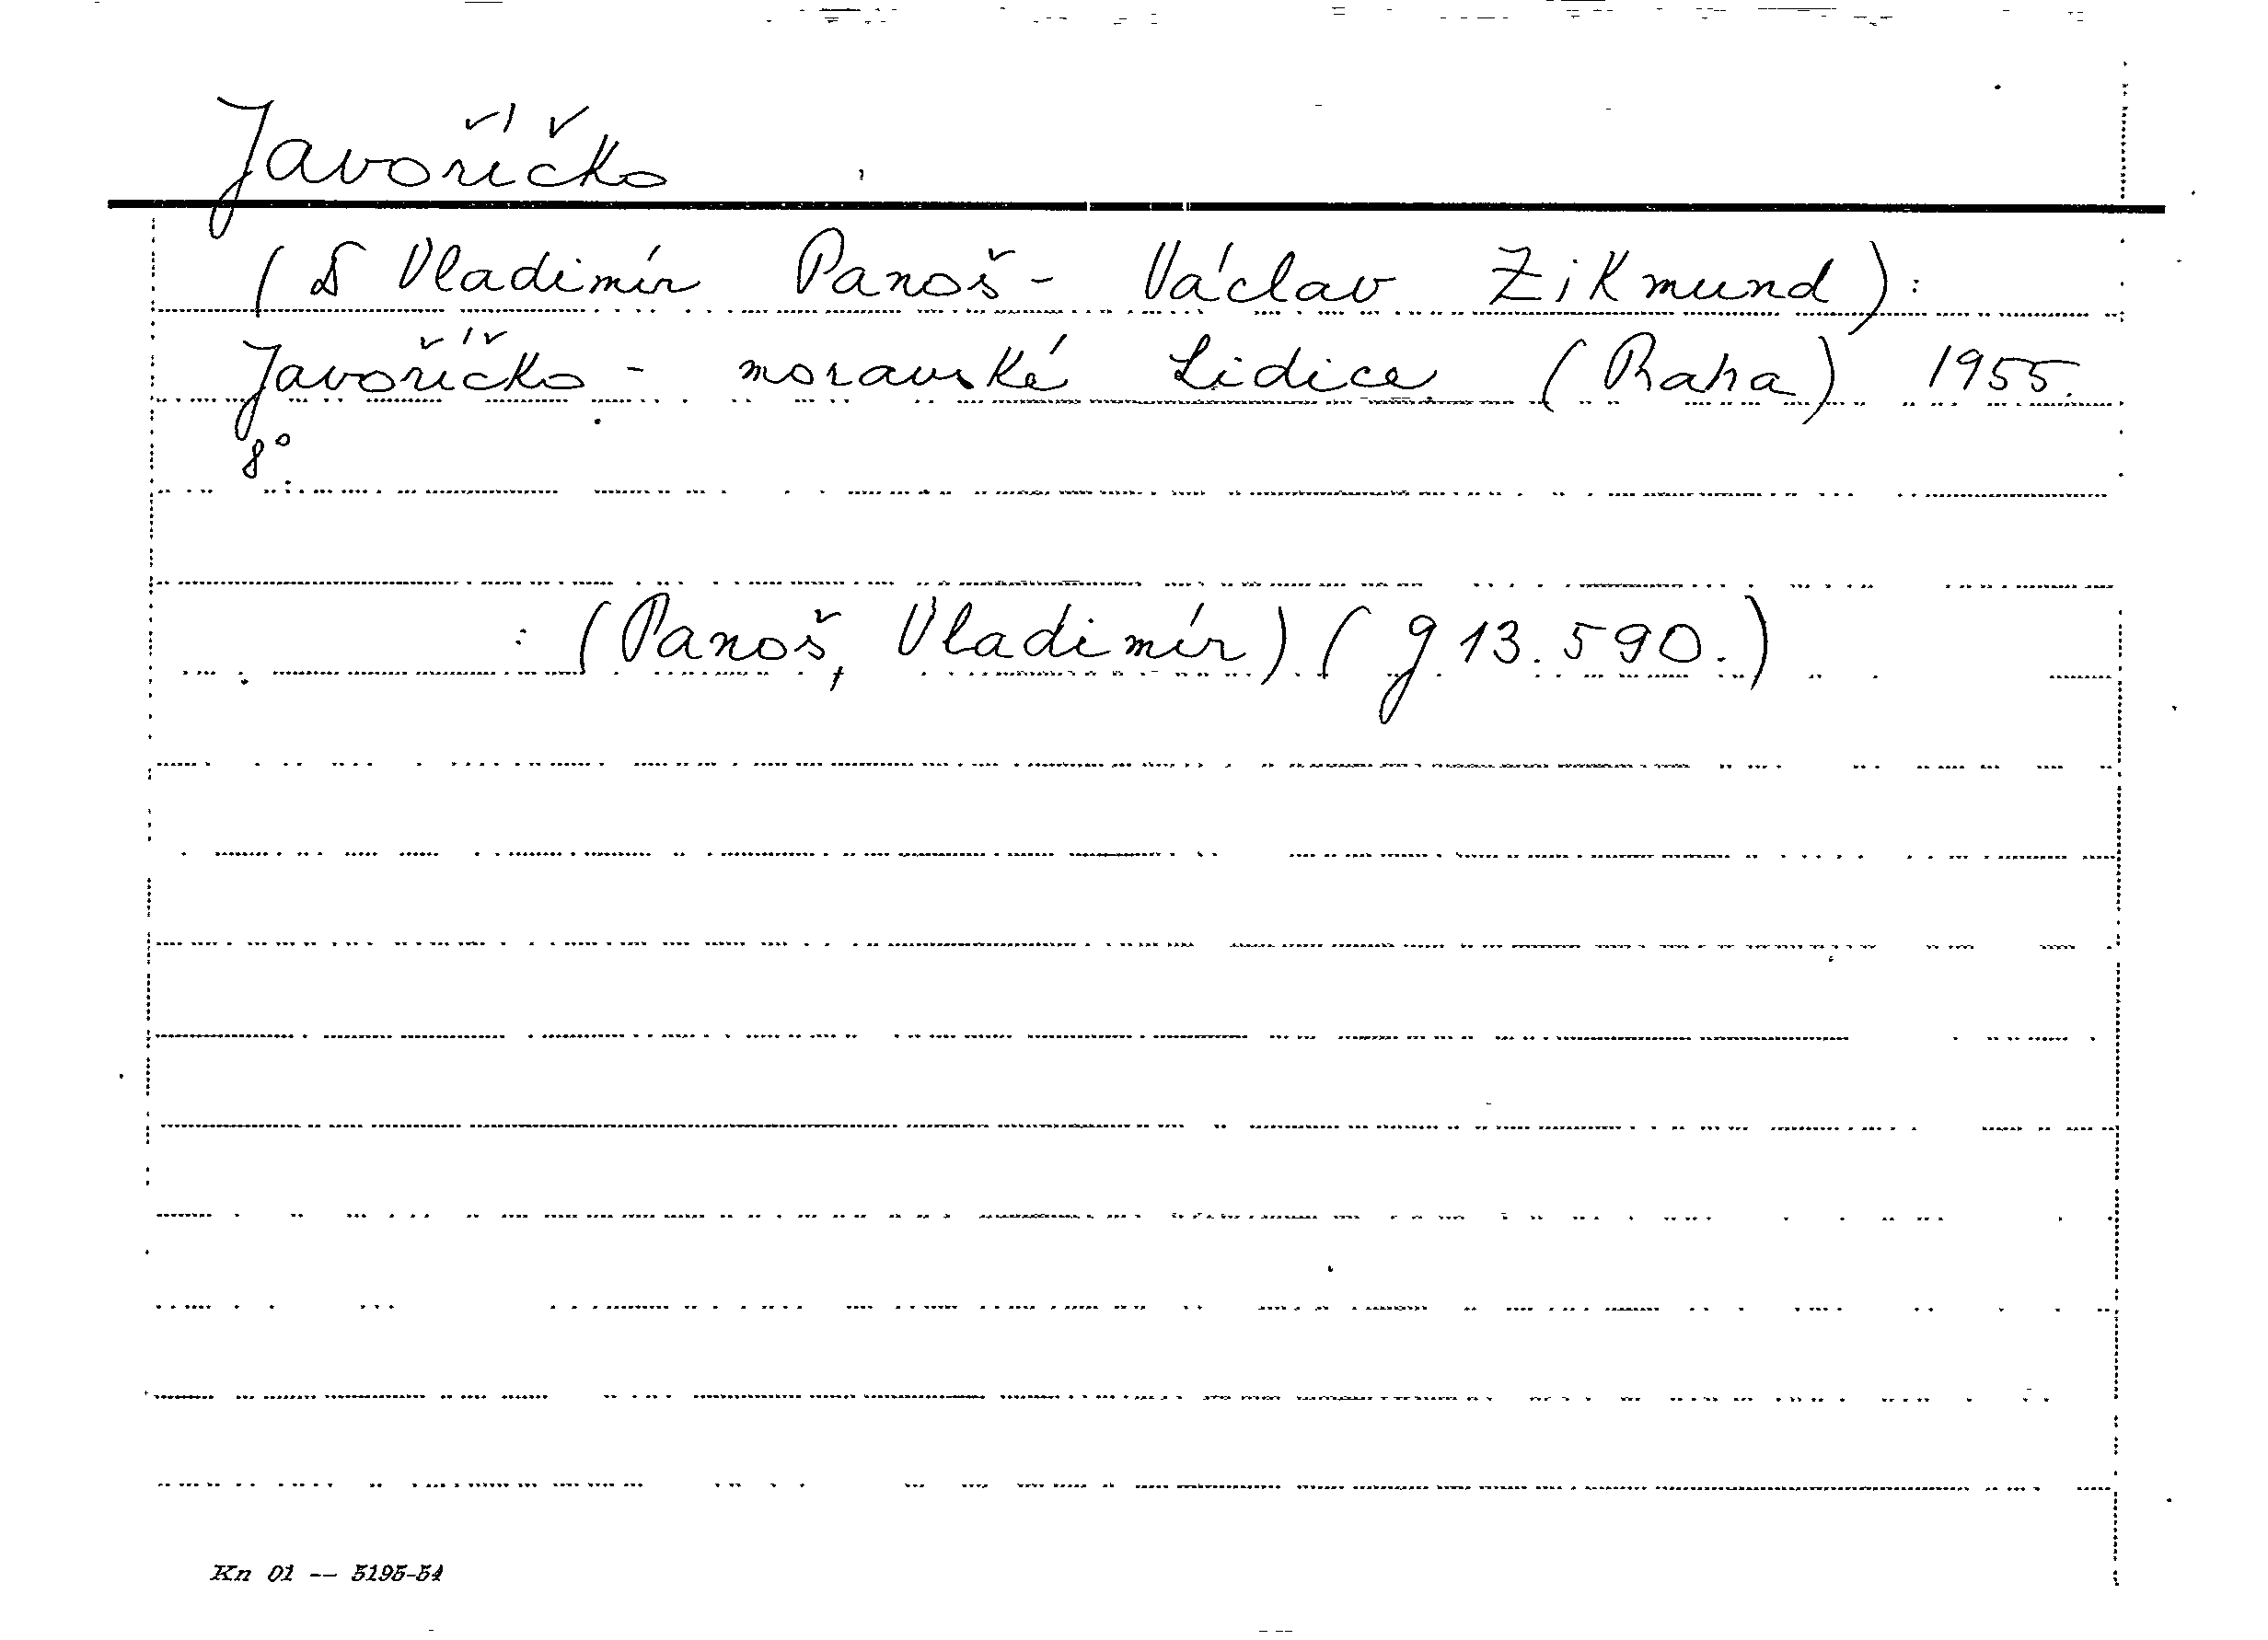 Javoříčko
( Vladimír Panoš - Václav Zikmund):
Javoříčko - moravské Lidice. (Praha) 1955.
8°.
: (Panoš, Vladimír) ( g 13.590.)
Kn 01 -- 5195-54